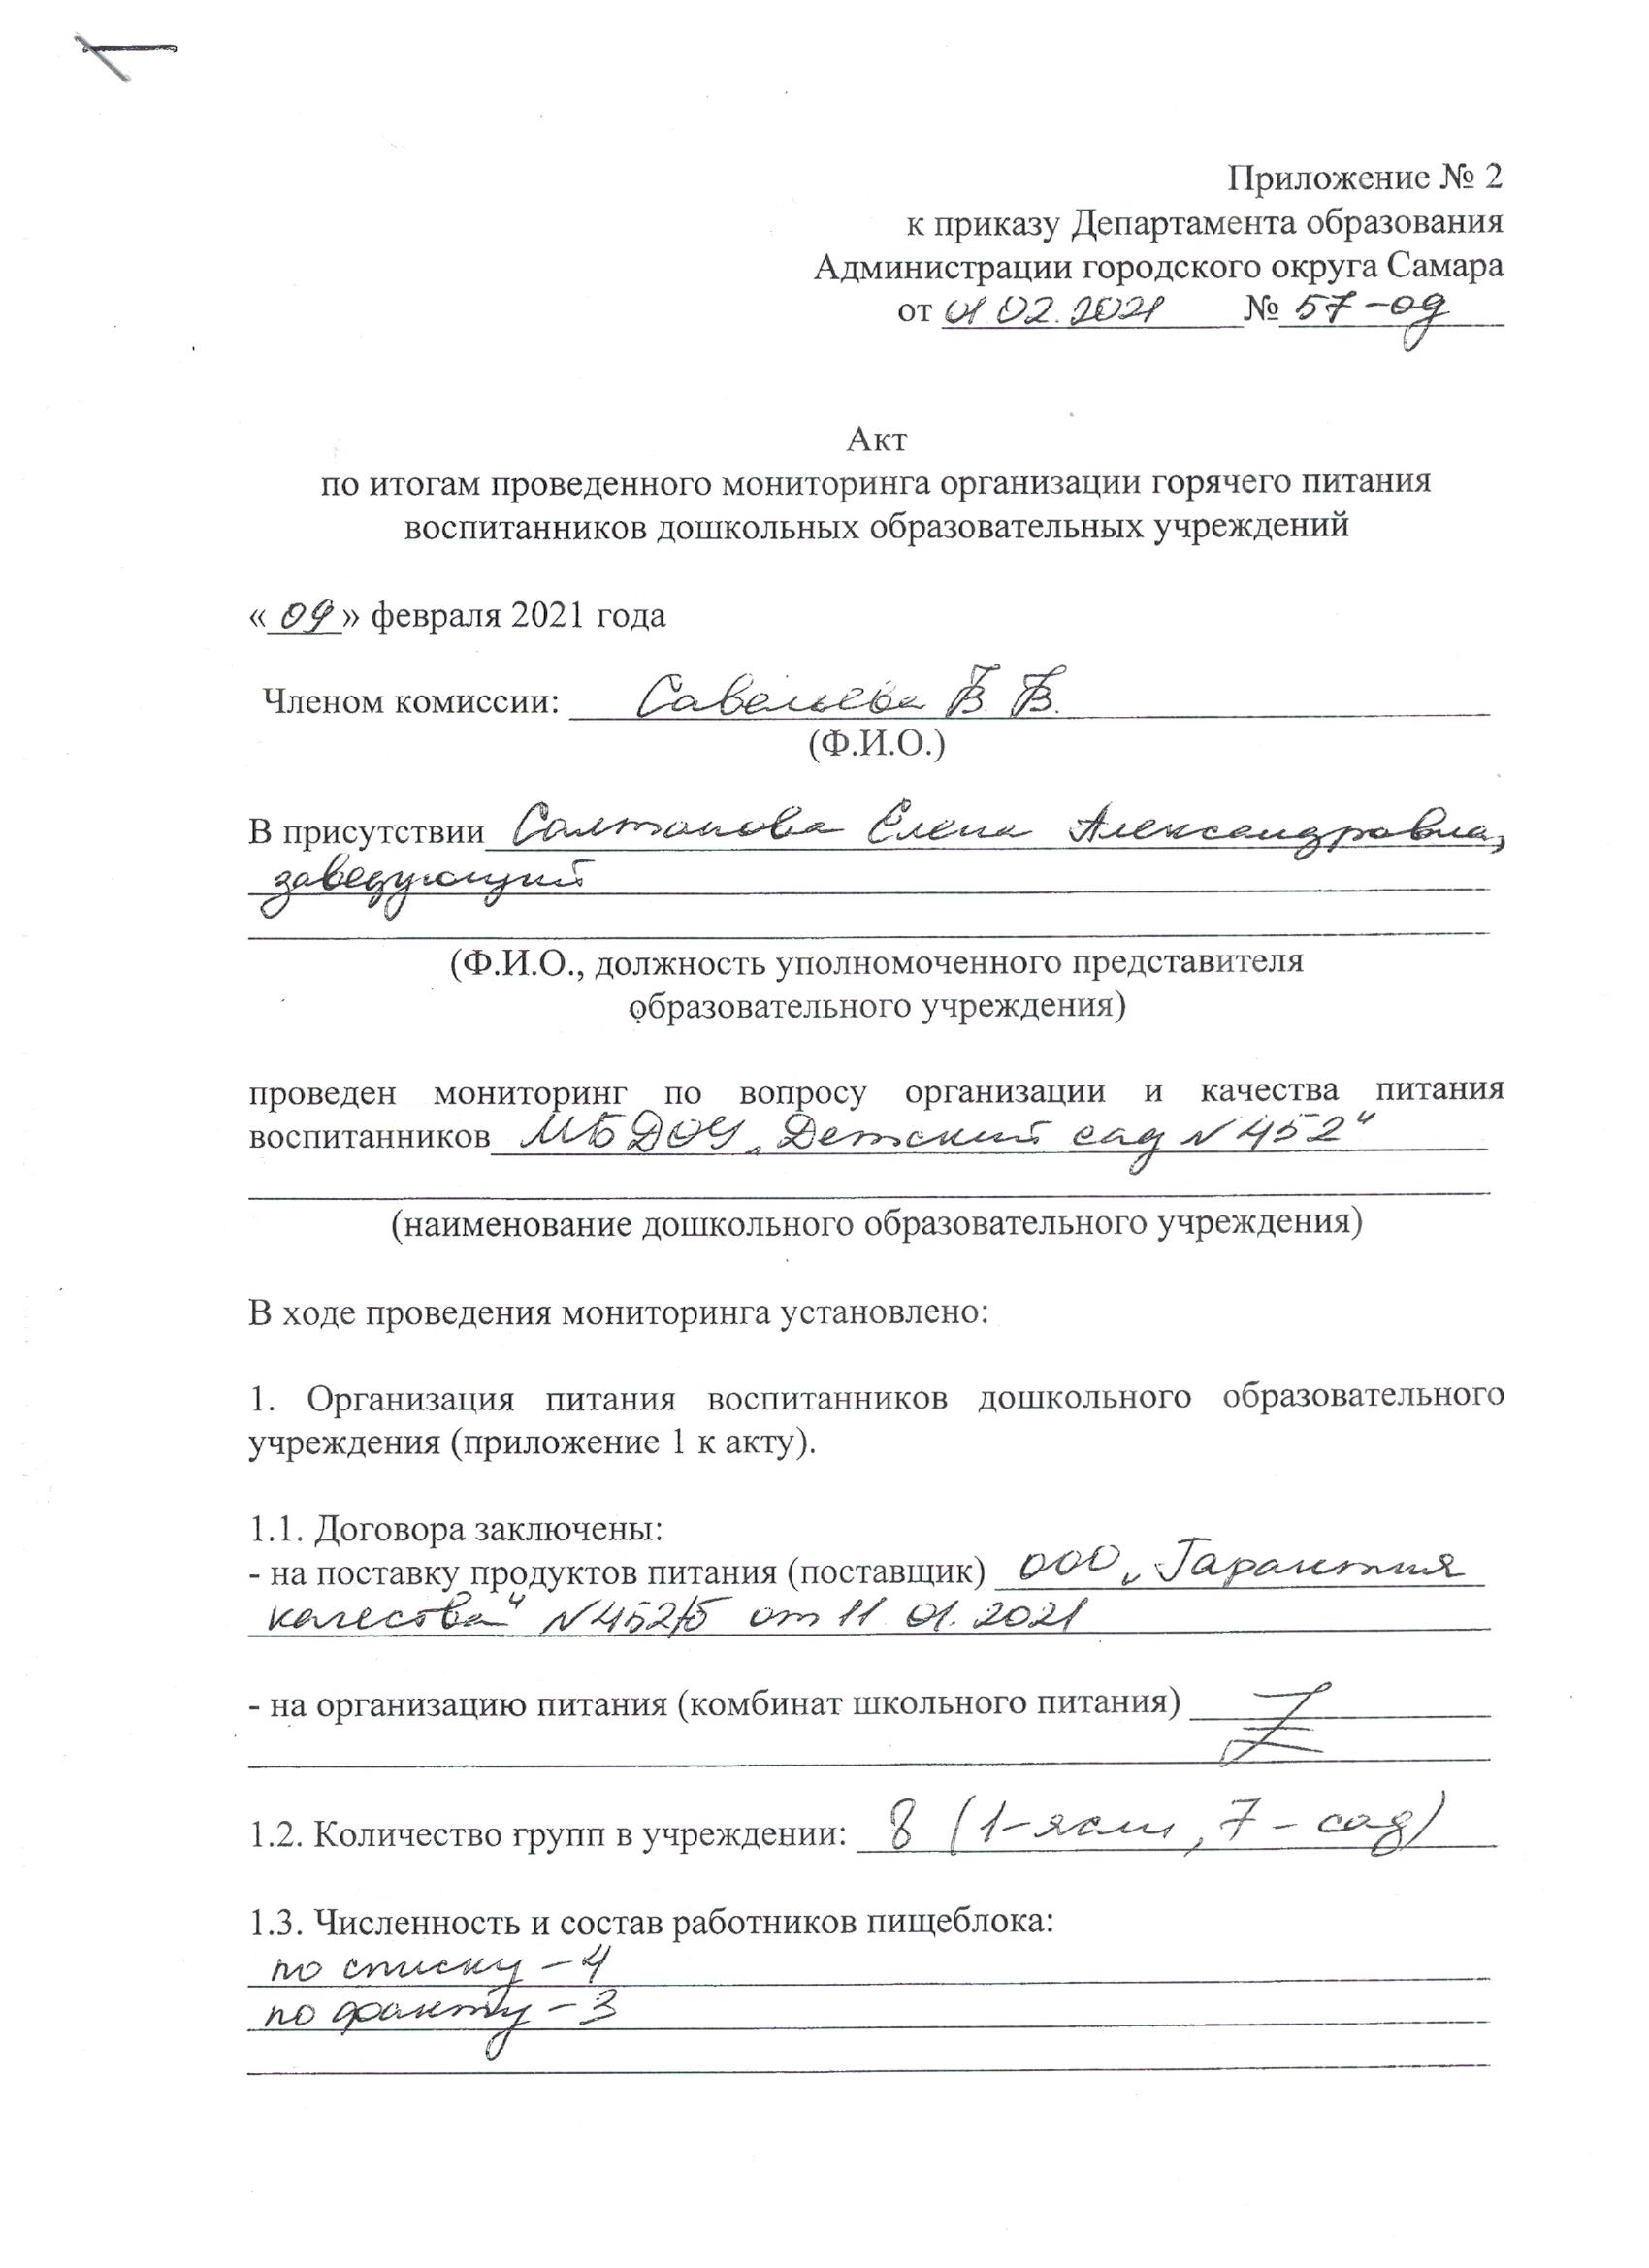 Приложение № 2
к приказу Департамента образования
Администрации городского округа Самара
от 01 02. 2021 № 57-од
Акт
по итогам проведенного мониторинга организации горячего питания
воспитанников дошкольных образовательных учреждений
« 09 » февраля 2021 года
Членом комиссии: Савельева В. В.
(Ф.И.О.)
В присутствии Салтанова Елена Александровна,
заведующий
(Ф.И.О., должность уполномоченного представителя
образовательного учреждения)
проведен мониторинг по вопросу организации и качества питания
воспитанников МБДОУ „Детский сад N 452“
(наименование дошкольного образовательного учреждения)
В ходе проведения мониторинга установлено:
1. Организация питания воспитанников дошкольного образовательного
учреждения (приложение 1 к акту).
1.1. Договора заключены:
- на поставку продуктов питания (поставщик) ООО „Гарантия
качества“ N 452/5 от 11 01. 2021
- на организацию питания (комбинат школьного питания)
1.2. Количество групп в учреждении: 8 (1-ясли, 7 - сад)
1.3. Численность и состав работников пищеблока:
по списку - 4
по факту - 3